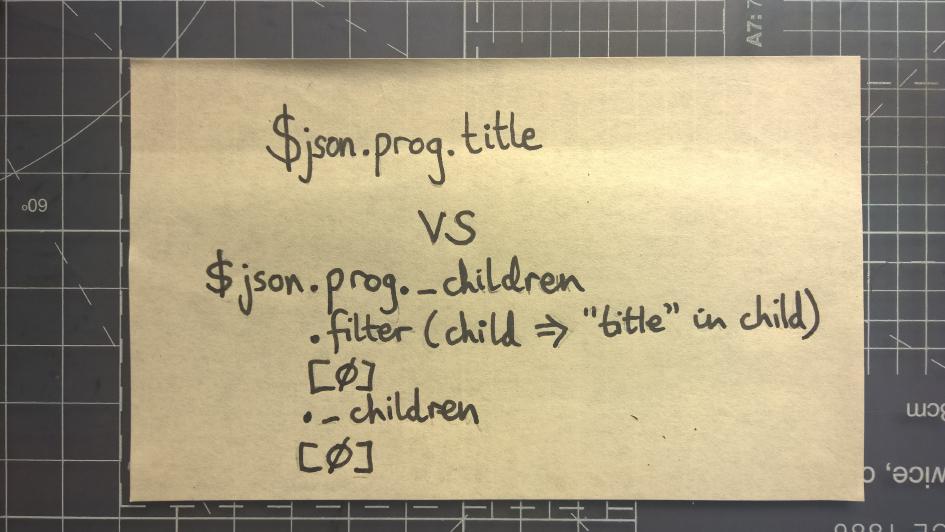 $json.prog.title
VS
$json.prog._children
.filter (child => "title" in child)
[0]
._children
[0]
A7:7
60°
3cm
wice, c